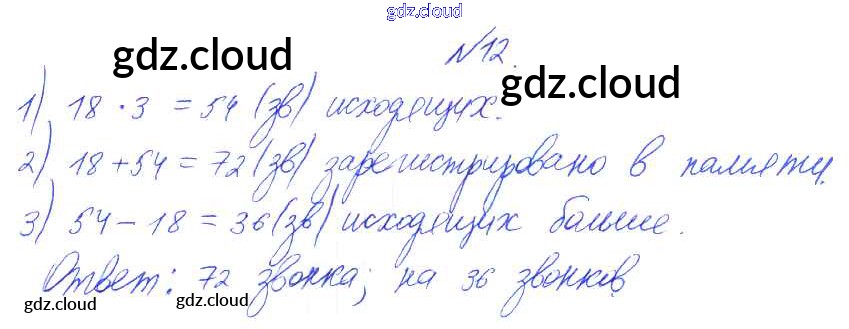 gdz.cloud
№12.
gdz.cloud
gdz.cloud
1) 18 · 3 = 54 (зв) исходящих.
2) 18 + 54 = 72 (зв) зарегистрировано в памяти.
3) 54 - 18 = 36 (зв) исходящих больше.
Ответ: 72 звонка; на 36 звонков
gdz.cloud
gdz.cloud